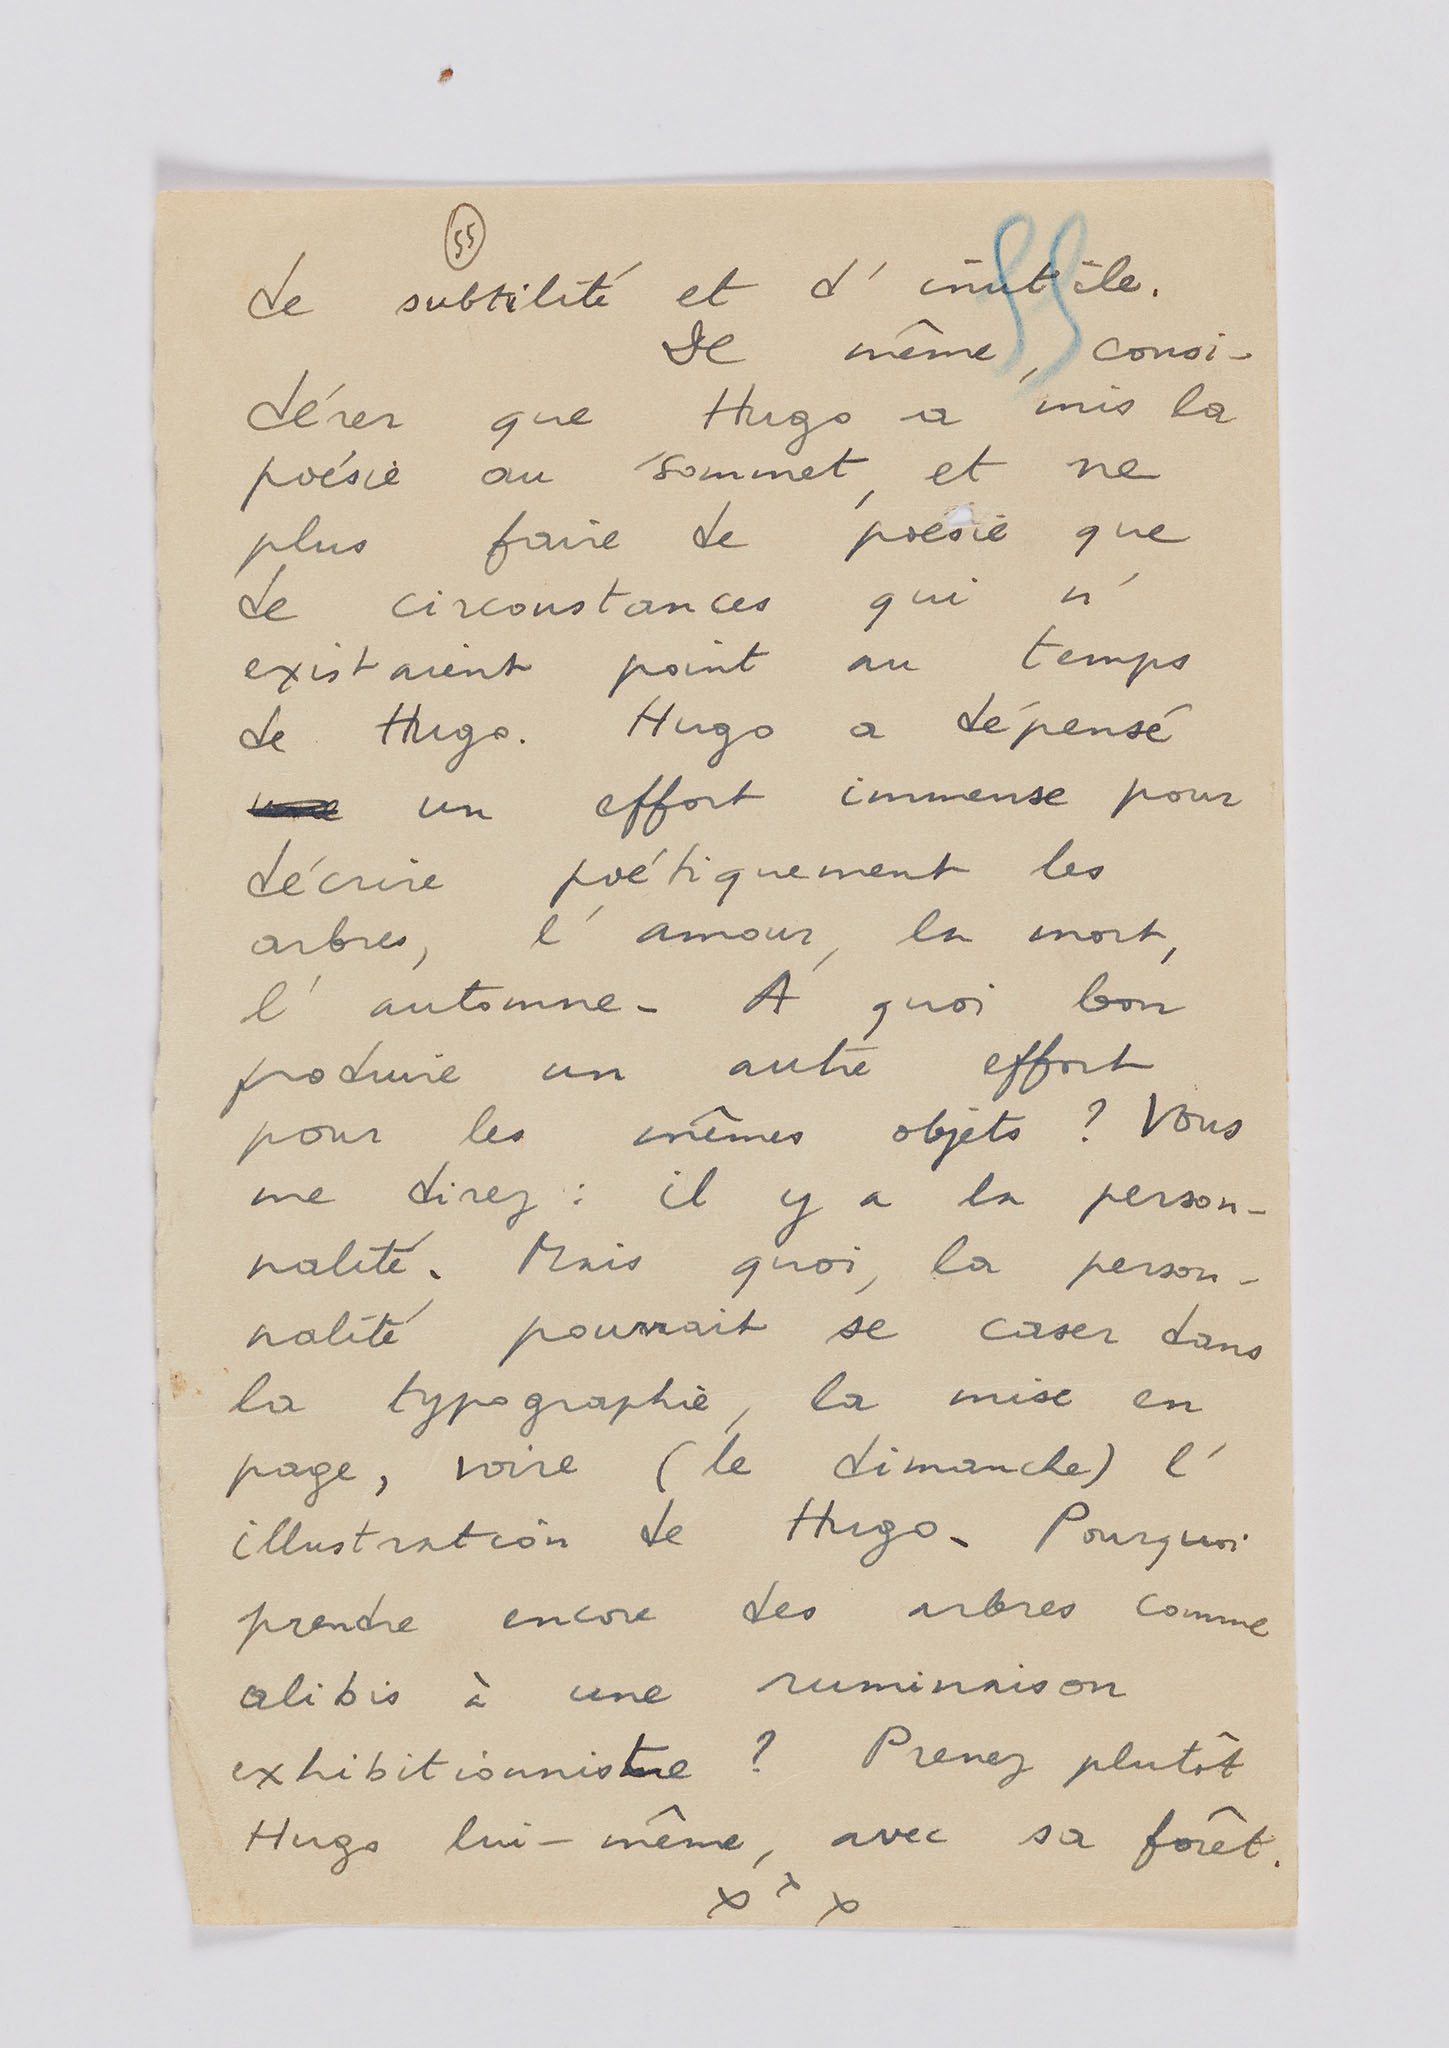 55
55
de subtilité et d' inutile.
De même, consi-
dérer que Hugo a mis la
poésie au sommet, et ne
plus faire de poésie que
de circonstances qui n'
existaient point au temps
de Hugo. Hugo a dépensé
un effort immense pour
décrire poétiquement les
arbres, l' amour, la mort,
l' automne. A quoi bon
produire un autre effort
pour les mêmes objets ? Vous
me direz : il y a la person-
nalité. Mais quoi, la person-
nalité pourrait se caser dans
la typographie, la mise en
page, voire (le dimanche) l'
illustration de Hugo. Pourquoi
prendre encore des arbres comme
alibis à une ruminaison
exhibitionniste ? Prenez plutôt
Hugo lui-même, avec sa forêt.
x x x